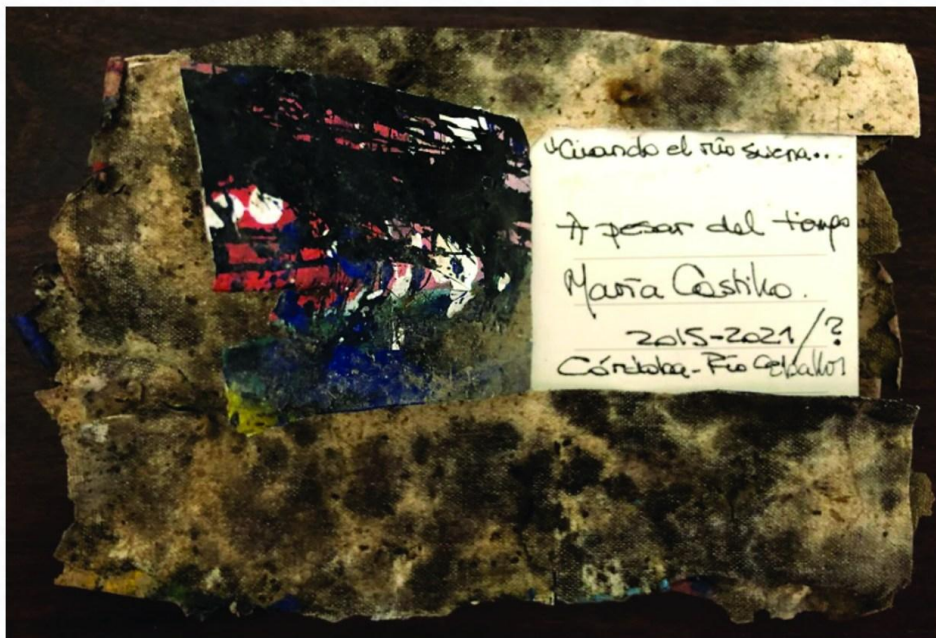 "Cuando el río suena...
A pesar del tiempo
María Castillo.
2015-2021/?
Córdoba-Río Ceballos